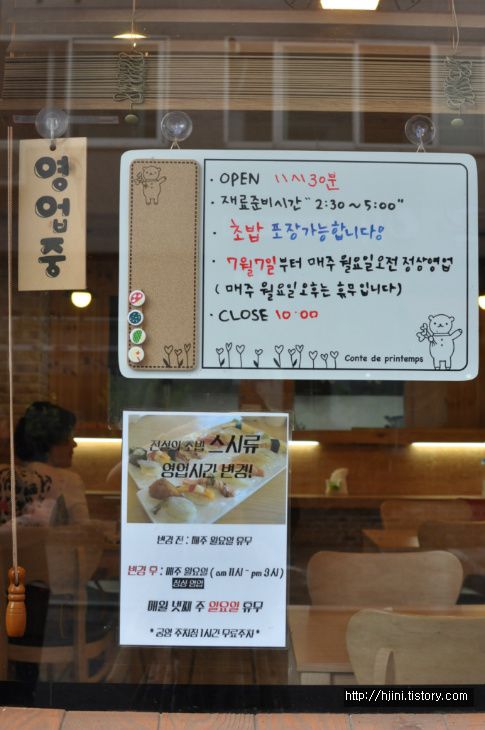 영업중
· OPEN 11시30분
· 재료준비시간 "2:30 ~ 5:00"
· 초밥 포장가능합니다!
· 7월7일부터 매주 월요일오전 정상영업
( 매주 월요일오후는 휴무입니다)
· CLOSE 10:00
Conte de printemps
스시류
영업시간 변경!
변경 전 : 매주 월요일 휴무
변경 후 : 매주 월요일 ( am 11시 - pm 3시 )
정상 영업
매월 넷째 주 일요일 휴무
* 공영 주차장 1시간 무료주차 *
http://hjini.tistory.com